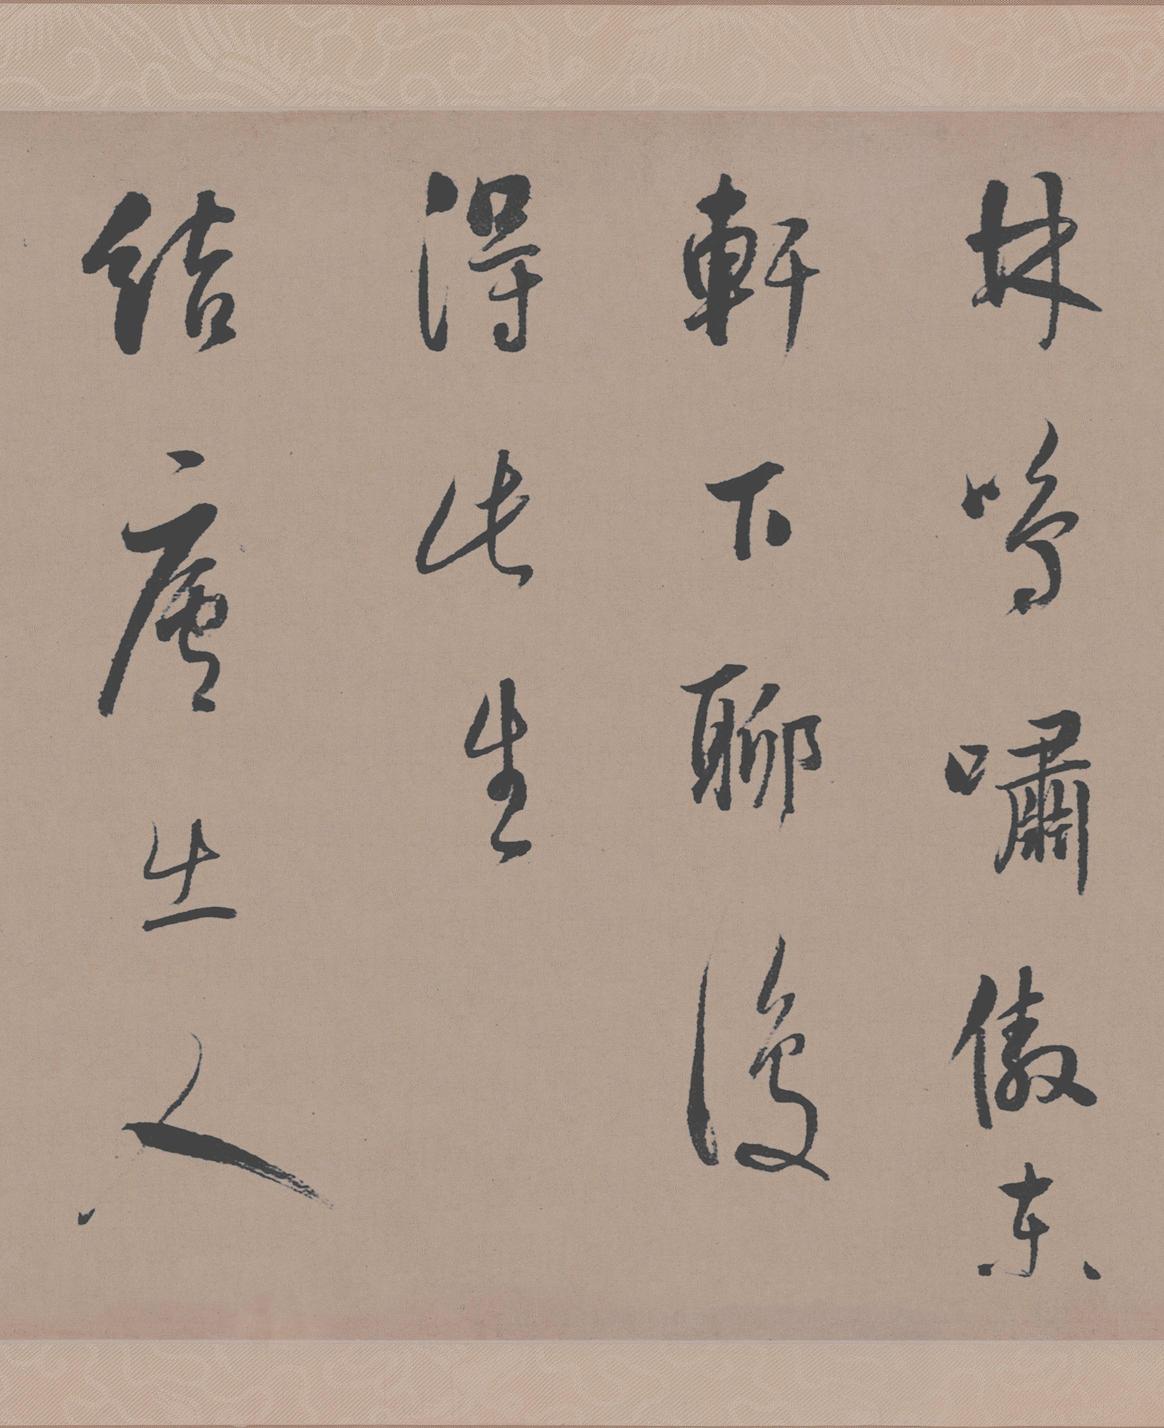 林鳴嘯傲东
軒下聊復
得此生
結廬在人